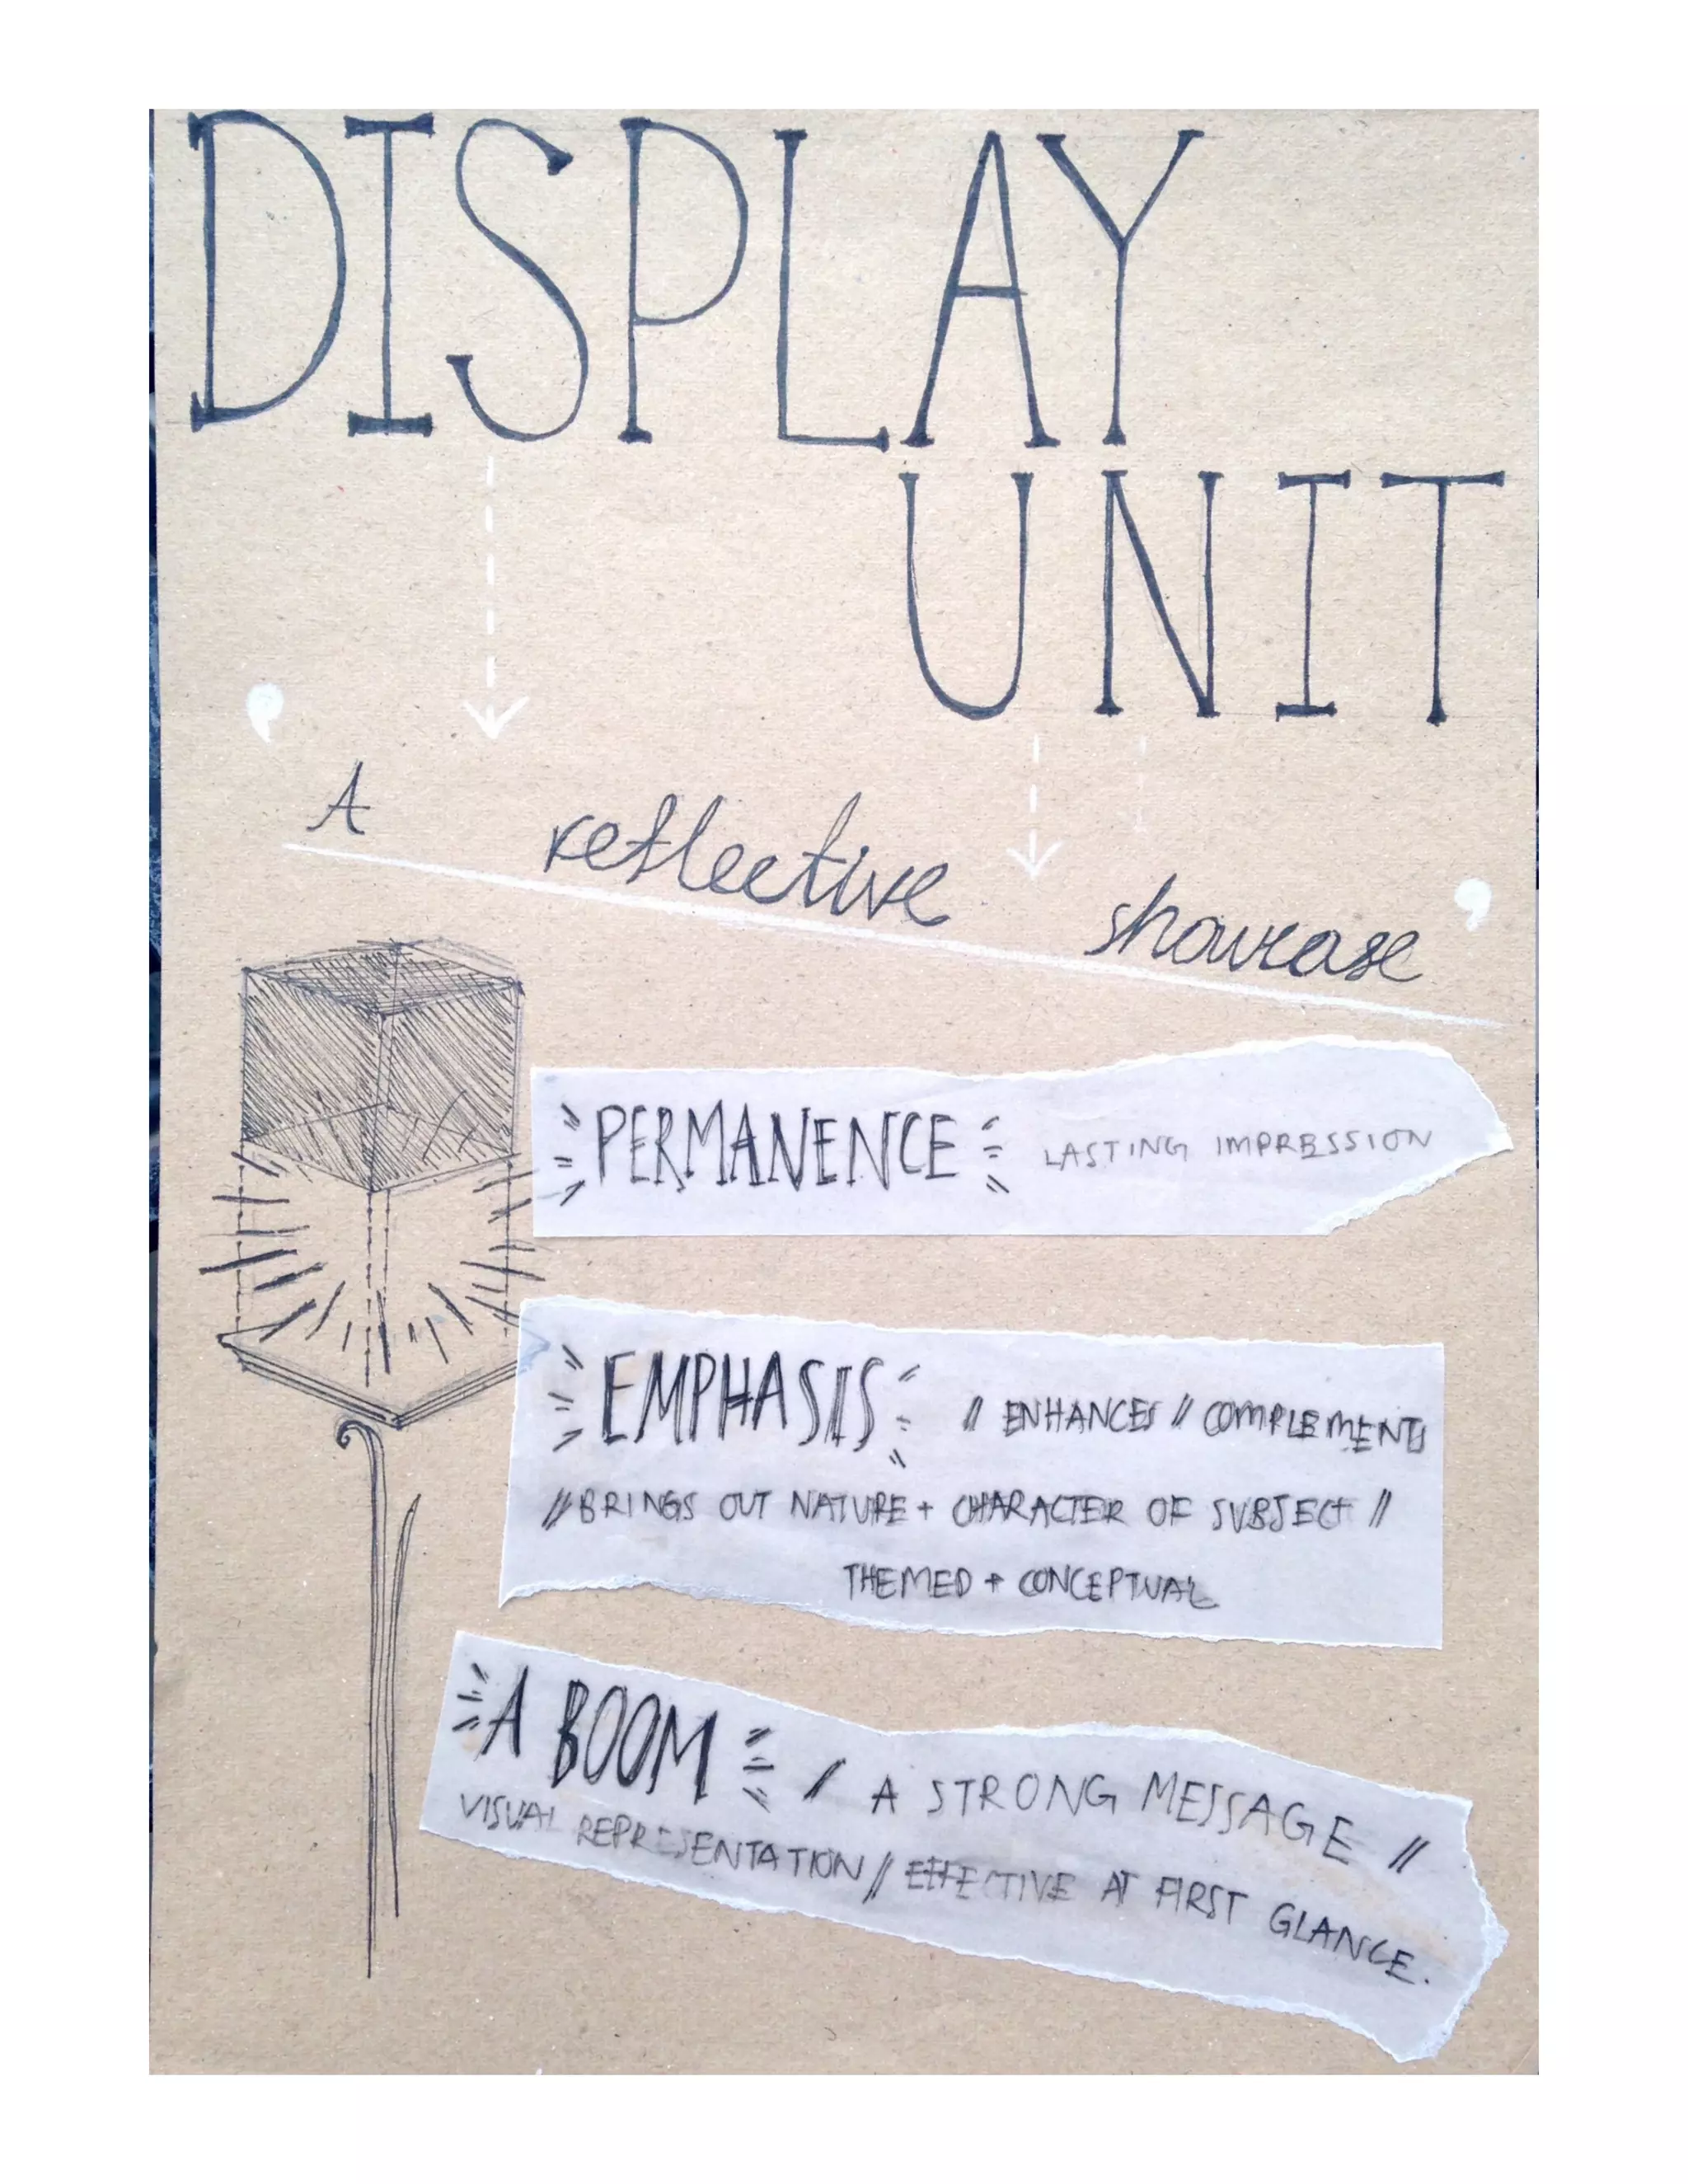 DISPLAY
UNIT
, A reflective showcase ,
PERMANENCE LASTING IMPRESSION
EMPHASIS // ENHANCES // COMPLEMENTS
// BRINGS OUT NATURE + CHARACTER OF SUBJECT //
THEMED + CONCEPTUAL
A BOOM / A STRONG MESSAGE //
VISUAL REPRESENTATION // EFFECTIVE AT FIRST GLANCE.